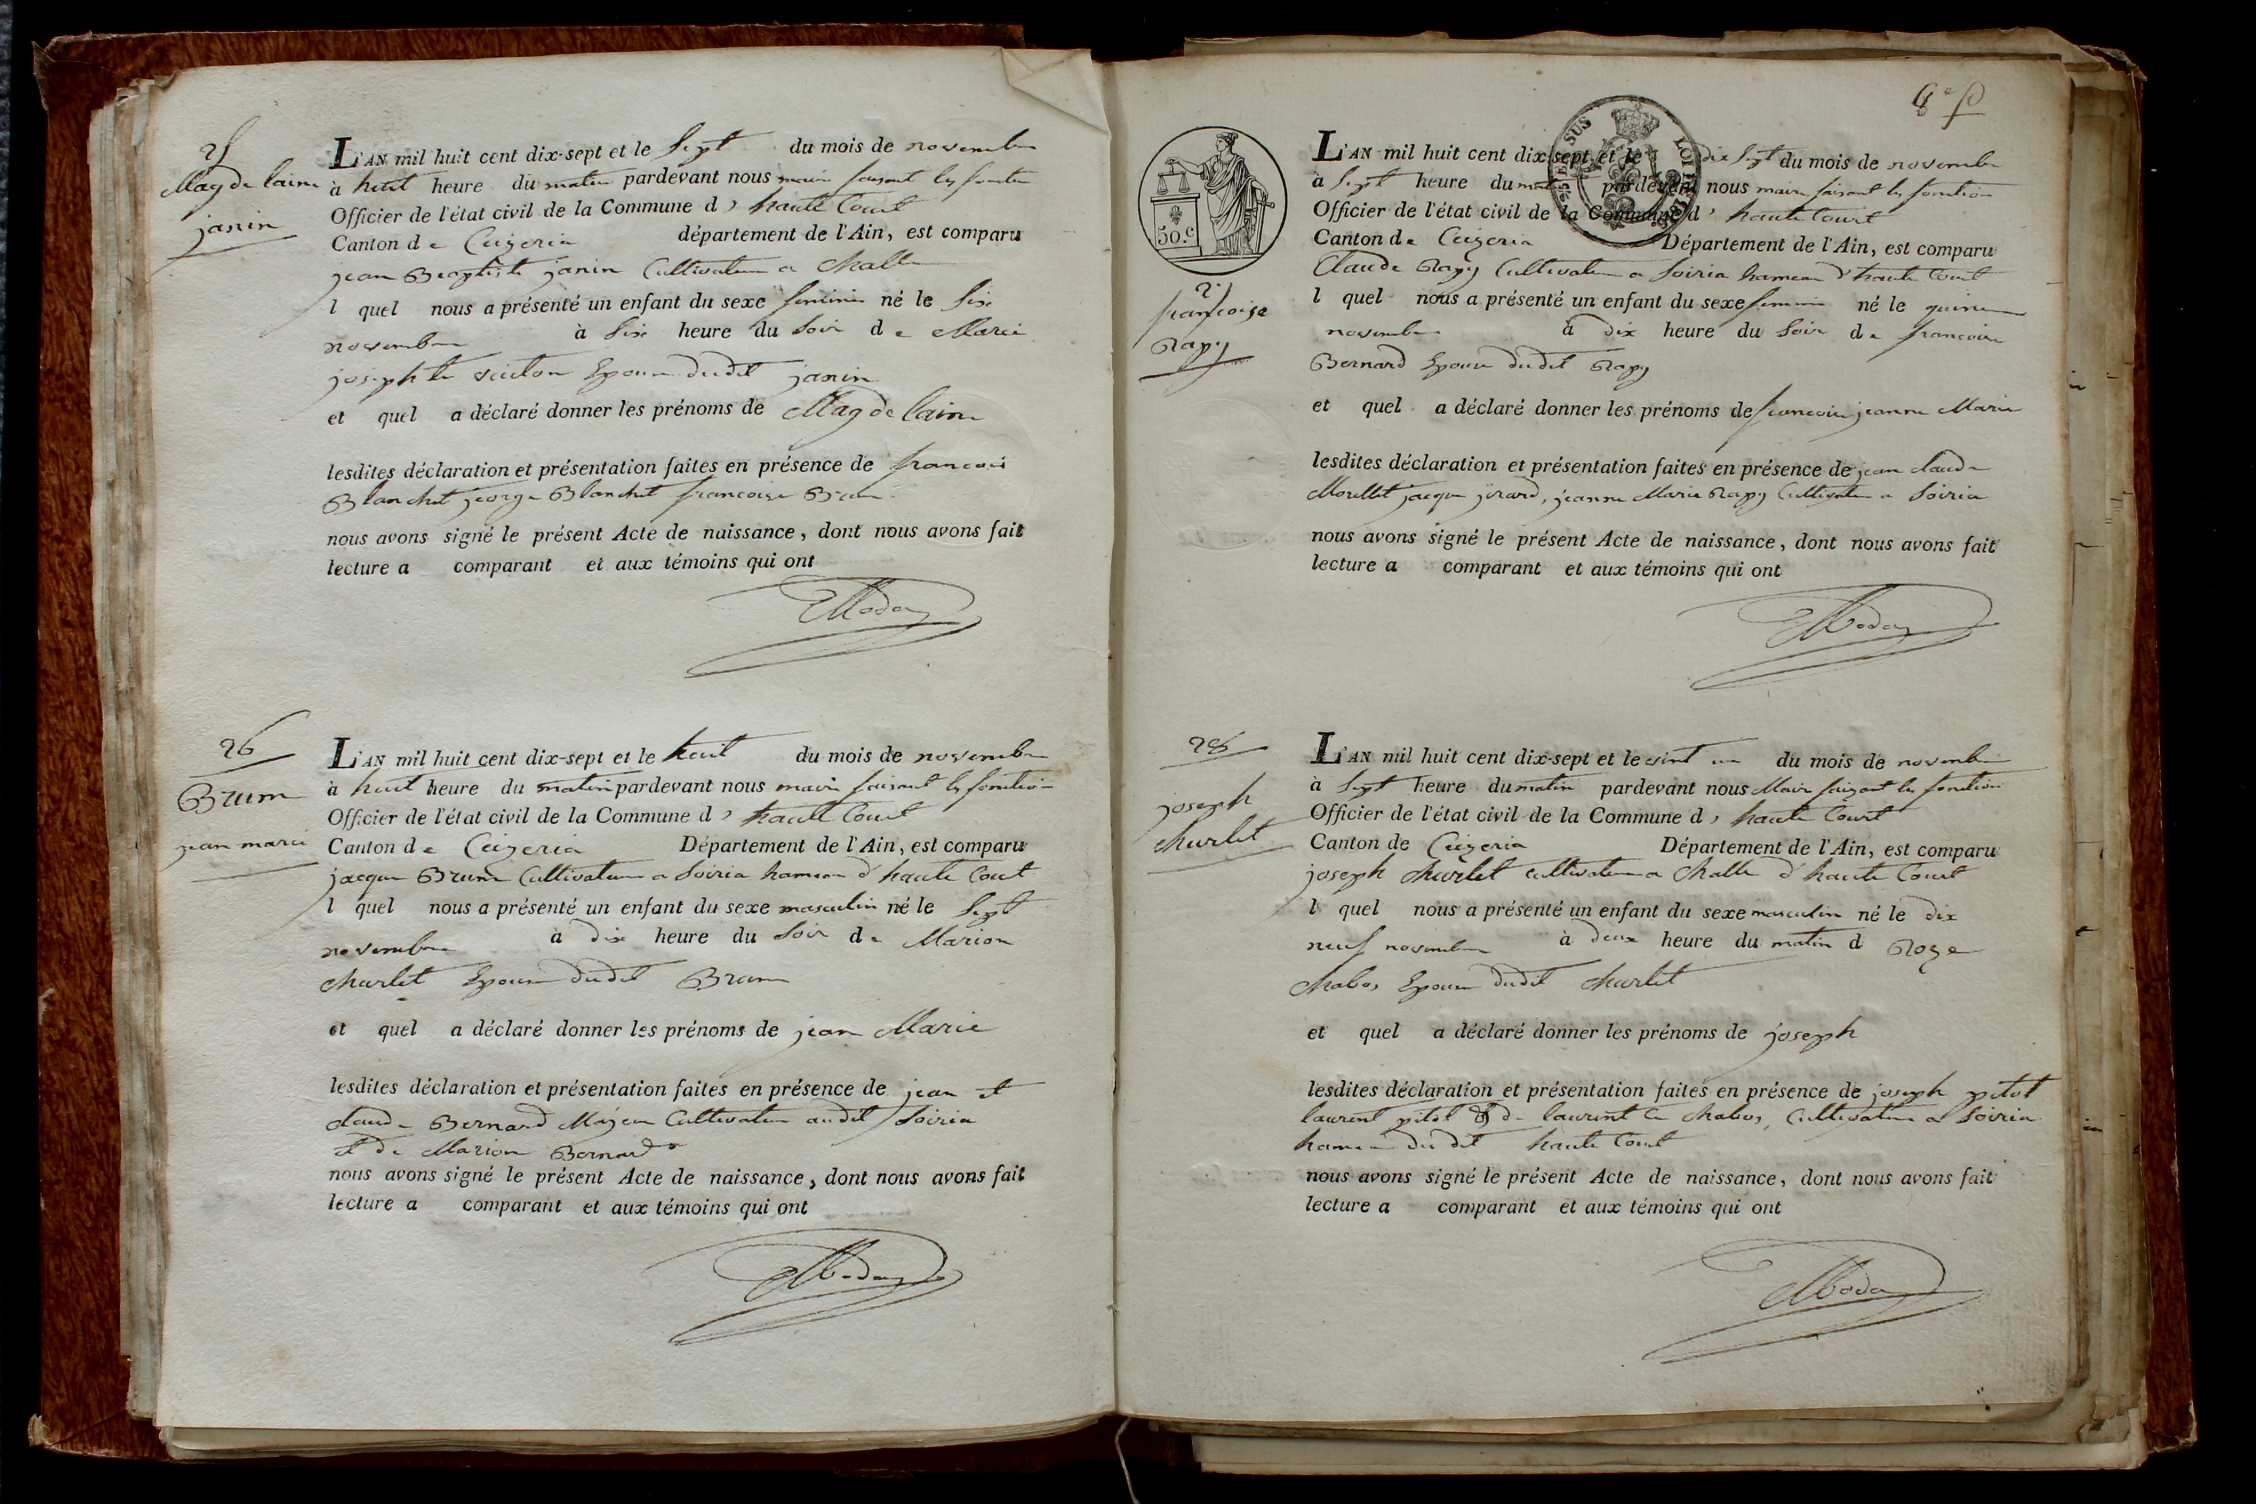 25
Magdelaine
janin
L'AN mil huit cent dix-sept et le Sept du mois de novembre
à huit heure du matin pardevant nous maire faisant les fonction
Officier de l'état civil de la Commune d' haute Court
Canton de Ceizeria département de l'Ain, est comparu
jean Baptiste janin Cultivateur a Challe
l quel nous a présenté un enfant du sexe feminin né le Six
novembre à Six heure du Soir de Marie
josephte Epouse dudit janin
et quel a déclaré donner les prénoms de Magdelaine
lesdites déclaration et présentation faites en présence de francois
Blanchet jeorge Blanchet francoise Brun
nous avons signé le présent Acte de naissance, dont nous avons fait
lecture a comparant et aux témoins qui ont
26
Brun
jean marie
L'AN mil huit cent dix-sept et le huit du mois de novembre
à huit heure du matin pardevant nous maire faisant les fonction
Officier de l'état civil de la Commune d' haute Court
Canton de Ceizeria Département de l'Ain, est comparu
jacque Brun Cultivateur a Soiria hameau d'haute Court
l quel nous a présenté un enfant du sexe masculin né le Sept
novembre à dix heure du Soir de Marion
Churlet Epouse dudit Brun
et quel a déclaré donner les prénoms de jean Marie
lesdites déclaration et présentation faites en présence de jean et
claude Bernard Majeur Cultivateur audit Soiria
et de Marion Bernard
nous avons signé le présent Acte de naissance, dont nous avons fait
lecture a comparant et aux témoins qui ont
50.c
27
francoise
Rapy
L'AN mil huit cent dix-sept et le dix Sept du mois de novembre
à Sept heure du matin pardevant nous maire faisant les fonction
Officier de l'état civil de la Commune d' haute Court
Canton de Ceizeria Département de l'Ain, est comparu
Claude Rapy Cultivateur a Soiria hameau d'haute Court
l quel nous a présenté un enfant du sexe feminin né le quinze
novembre à dix heure du Soir de francoise
Bernard Epouse dudit Rapy
et quel a déclaré donner les prénoms de francoise jeanne Marie
lesdites déclaration et présentation faites en présence de jean claude
Morellet jacque jirard, jeanne Marie Rapy Cultivateur a Soiria
nous avons signé le présent Acte de naissance, dont nous avons fait
lecture a comparant et aux témoins qui ont
28
joseph
churlet
L'AN mil huit cent dix-sept et le vint un du mois de novembre
à Sept heure du matin pardevant nous Maire faizant les fonction
Officier de l'état civil de la Commune d' haute Court
Canton de Ceizeria Département de l'Ain, est comparu
joseph churlet cultivateur a Challe d'haute Court
l quel nous a présenté un enfant du sexe masculin né le dix
neuf novembre à deux heure du matin d Roze
Chabos Epouse dudit churlet
et quel a déclaré donner les prénoms de joseph
lesdites déclaration et présentation faites en présence de joseph pitot
laurent pitot & de laurent Chabos, Cultivateur a Soiria
hameau dudit haute Court
nous avons signé le présent Acte de naissance, dont nous avons fait
lecture a comparant et aux témoins qui ont